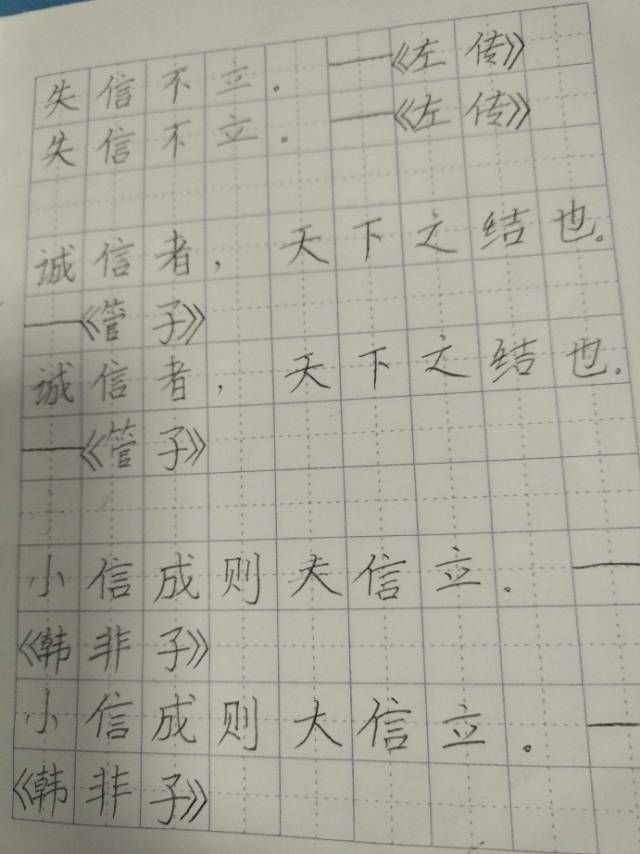 失信不立。——《左传》
失信不立。——《左传》
诚信者，天下之结也。
——《管子》
诚信者，天下之结也。
——《管子》
小信成则夫信立。——
《韩非子》
小信成则大信立。——
《韩非子》